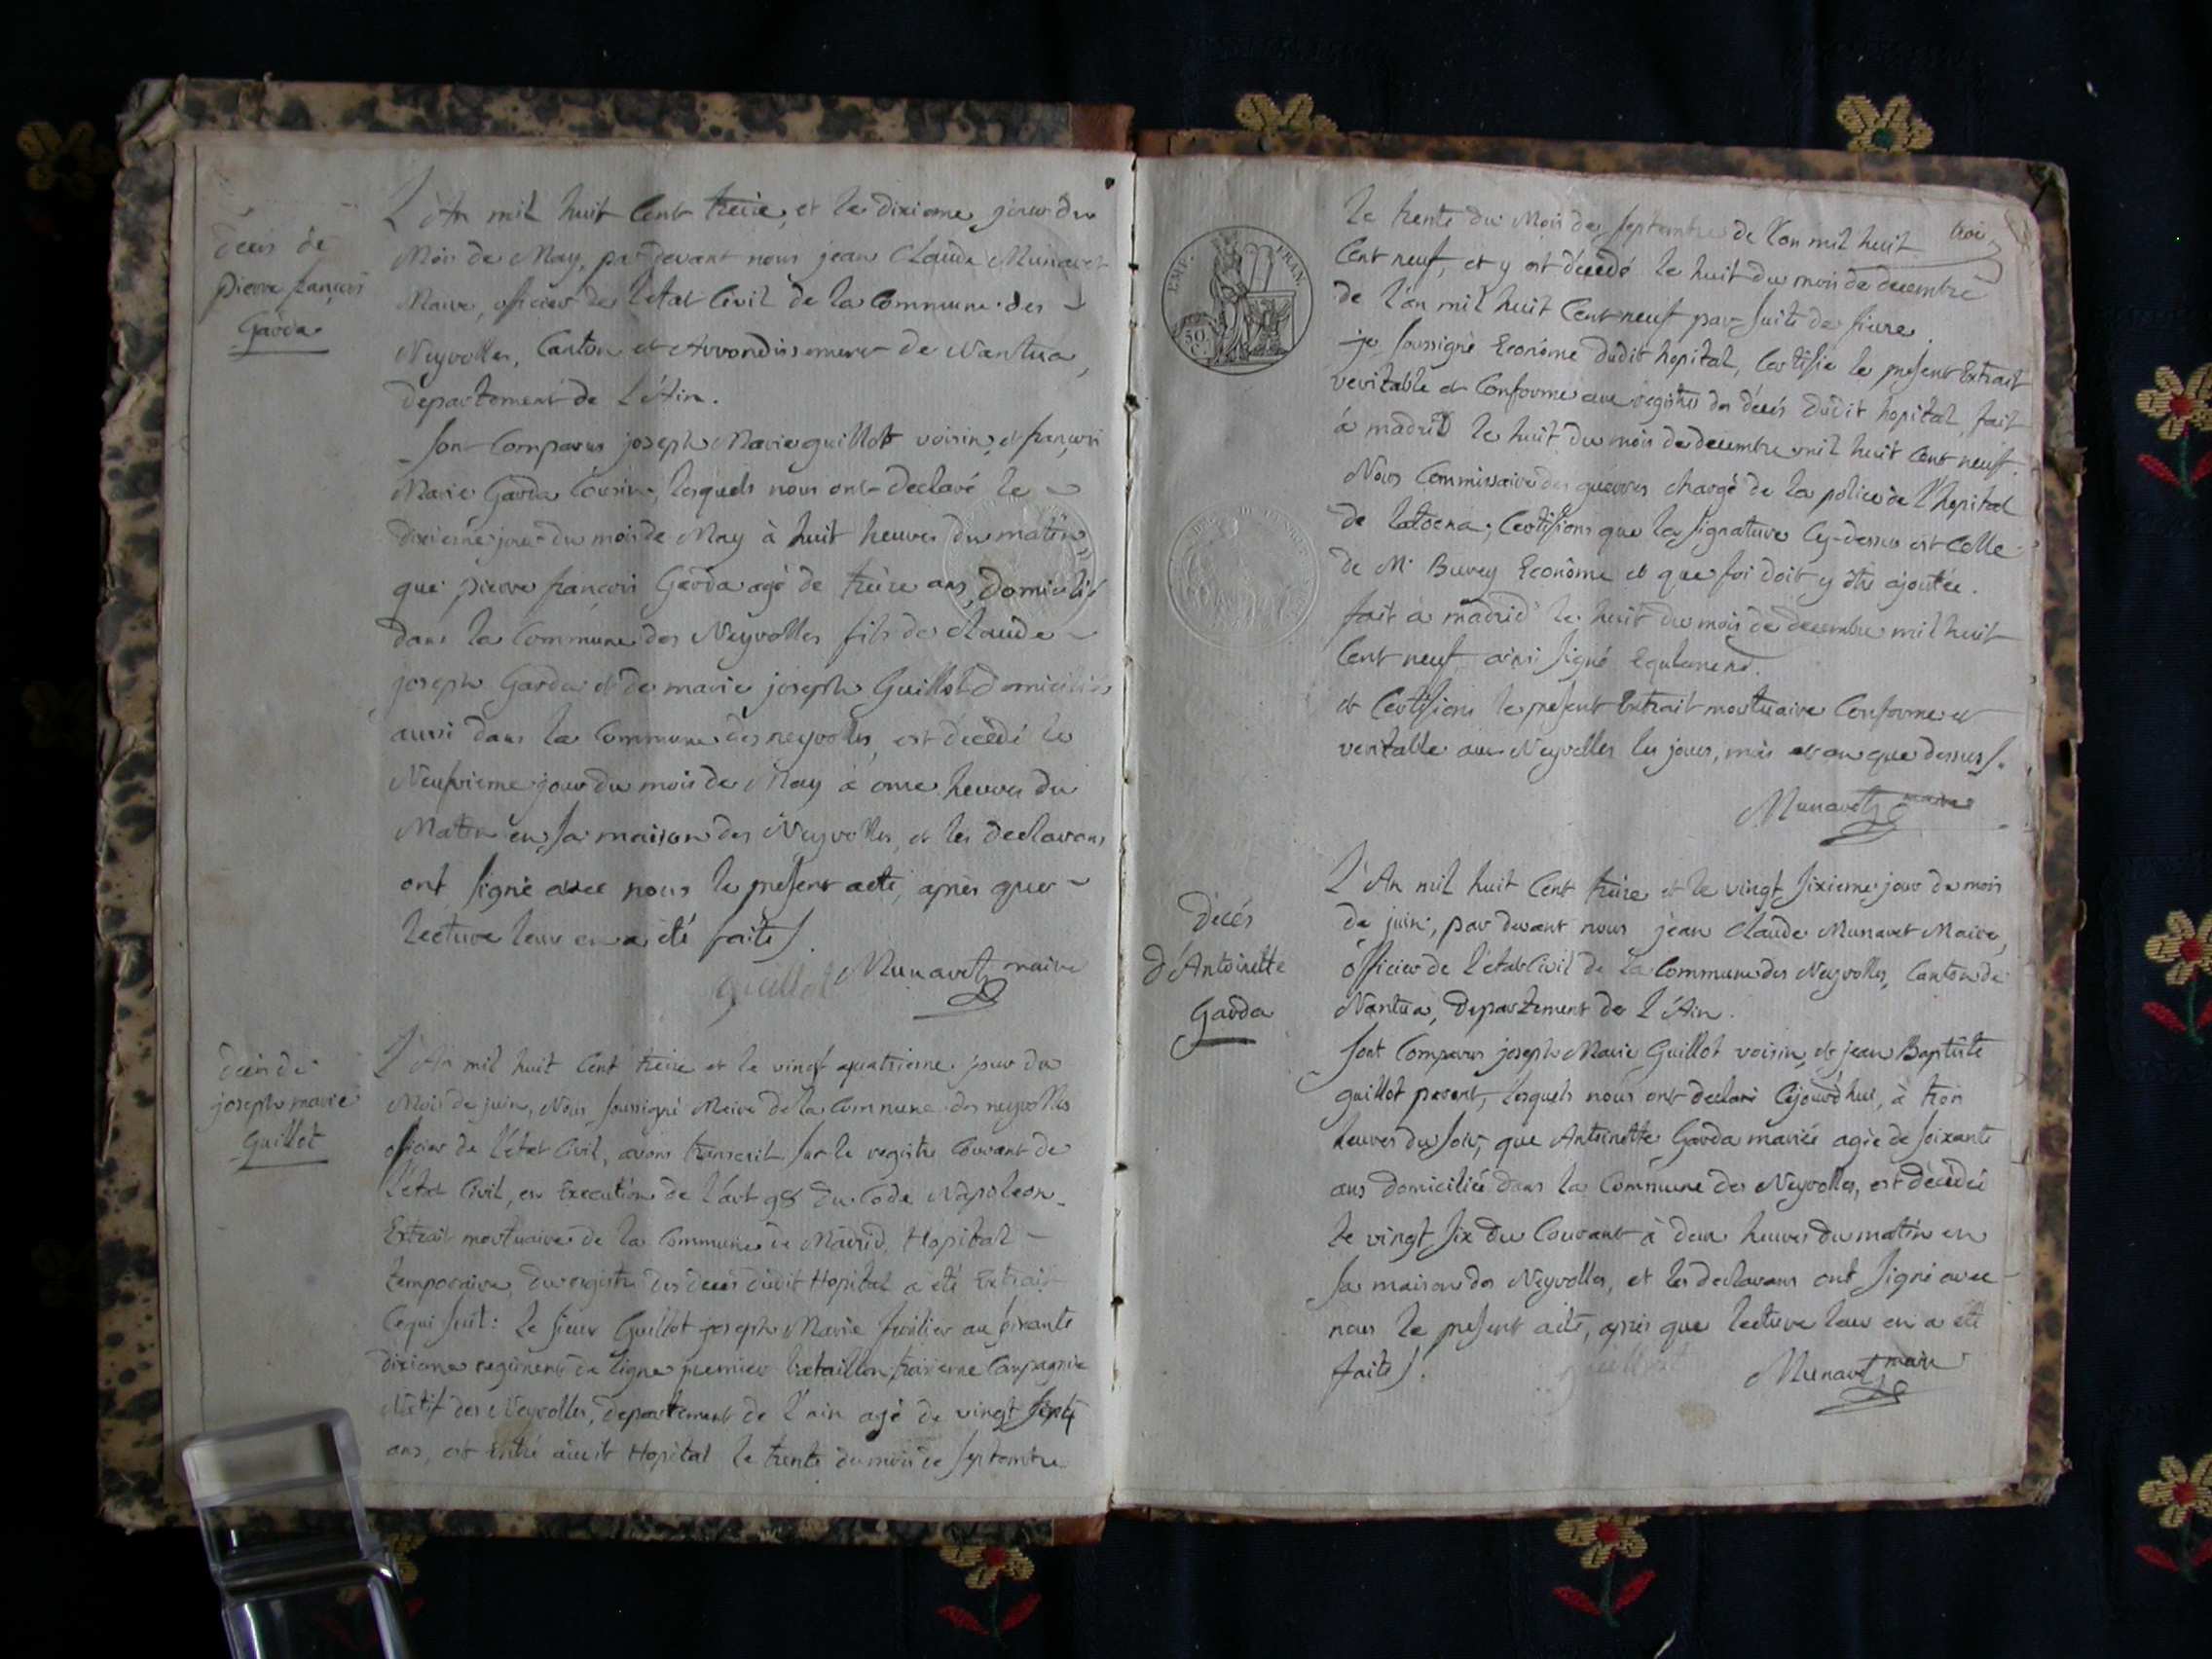 décès de
pierre françois
Garda
L'An mil huit Cent treize, et le dixieme jour du
Mois de May, par devant nous jean Claude Munavet
Maire, officier de l'état Civil de la Commune des
Neyrolles, Canton et Arrondissement de Nantua,
departement de L'Ain.
Sont Comparus joseph Marie guillot voisin, et françois
Marie Garda Cousin, lesquels nous ont declaré le
dixieme jour du mois de May à huit heures du matin,
que pierre françois Garda agé de treize ans, domicilié
dans la Commune des Neyrolles fils de Claude
joseph Garda et de marie joseph Guillot domiciliés
aussi dans la Commune des neyrolles, est décedé le
Neufvieme jour du mois de May à onze heures du
Matin en sa maison des Neyrolles, et les declarans
ont signé avec nous le present acte, après que
lecture leur en a été faite.
guillot Munavet maire
décès de
joseph marie
Guillot
L'An mil huit Cent treize et le vingt quatrieme jour du
Mois de juin, Nous soussigné Maire de la Commune des neyrolles
officier de l'état Civil, avons transcrit sur le registre Courant de
l'état Civil, en Execution de l'art 98 du Code Napoleon.
Extrait mortuaire de la Commune de Madrid, Hopital
temporaire, du registre des décès dudit Hopital a été Extrait
Ce qui suit: Le sieur Guillot joseph Marie fusilier au soixante
dixieme regiment de ligne premier bataillon troisieme Compagnie
Natif des Neyrolles, departement de l'ain agé de vingt sept
ans, est entré audit Hopital le trente du mois de septembre
trois
EMP. FRAN.
50 C.
le trente du Mois de septembre de l'an mil huit
Cent neuf, et y est décedé le huit du mois de decembre
de l'an mil huit Cent neuf par suite de fievre.
je soussigné Econôme dudit hopital, Certifie le present Extrait
veritable et Conforme au registre des décès dudit hopital, fait
à madrid le huit du mois de decembre mil huit Cent neuf.
Nous Commissaire des guerres chargé de la police de l'hopital
de ; Certifions que la signature Cy-dessus est Celle
de Mr Econôme et que foi doit y être ajoutée.
fait à madrid le huit du mois de decembre mil huit
Cent neuf ainsi signé
et Certifions le present Extrait mortuaire Conforme et
veritable aux Neyrolles les jours, mois et an que dessus.
Munavet maire
Décès
d'Antoinette
Garda
L'An mil huit Cent treize et le vingt sixieme jour du mois
de juin, par devant nous jean Claude Munavet Maire,
officier de l'état Civil de la Commune des Neyrolles, Canton de
Nantua, Departement de L'Ain.
Sont Comparus joseph Marie Guillot voisin, et jean Baptiste
guillot parent, lesquels nous ont declaré Cejourd'hui, à trois
heures du soir, que Antoinette Garda mariée agée de soixante
ans domiciliée dans la Commune des Neyrolles, est décédée
le vingt six du Courant à deux heures du matin en
sa maison des Neyrolles, et les declarans ont signé avec
nous le present acte, après que lecture leur en a été
faite.
guillot Munavet maire